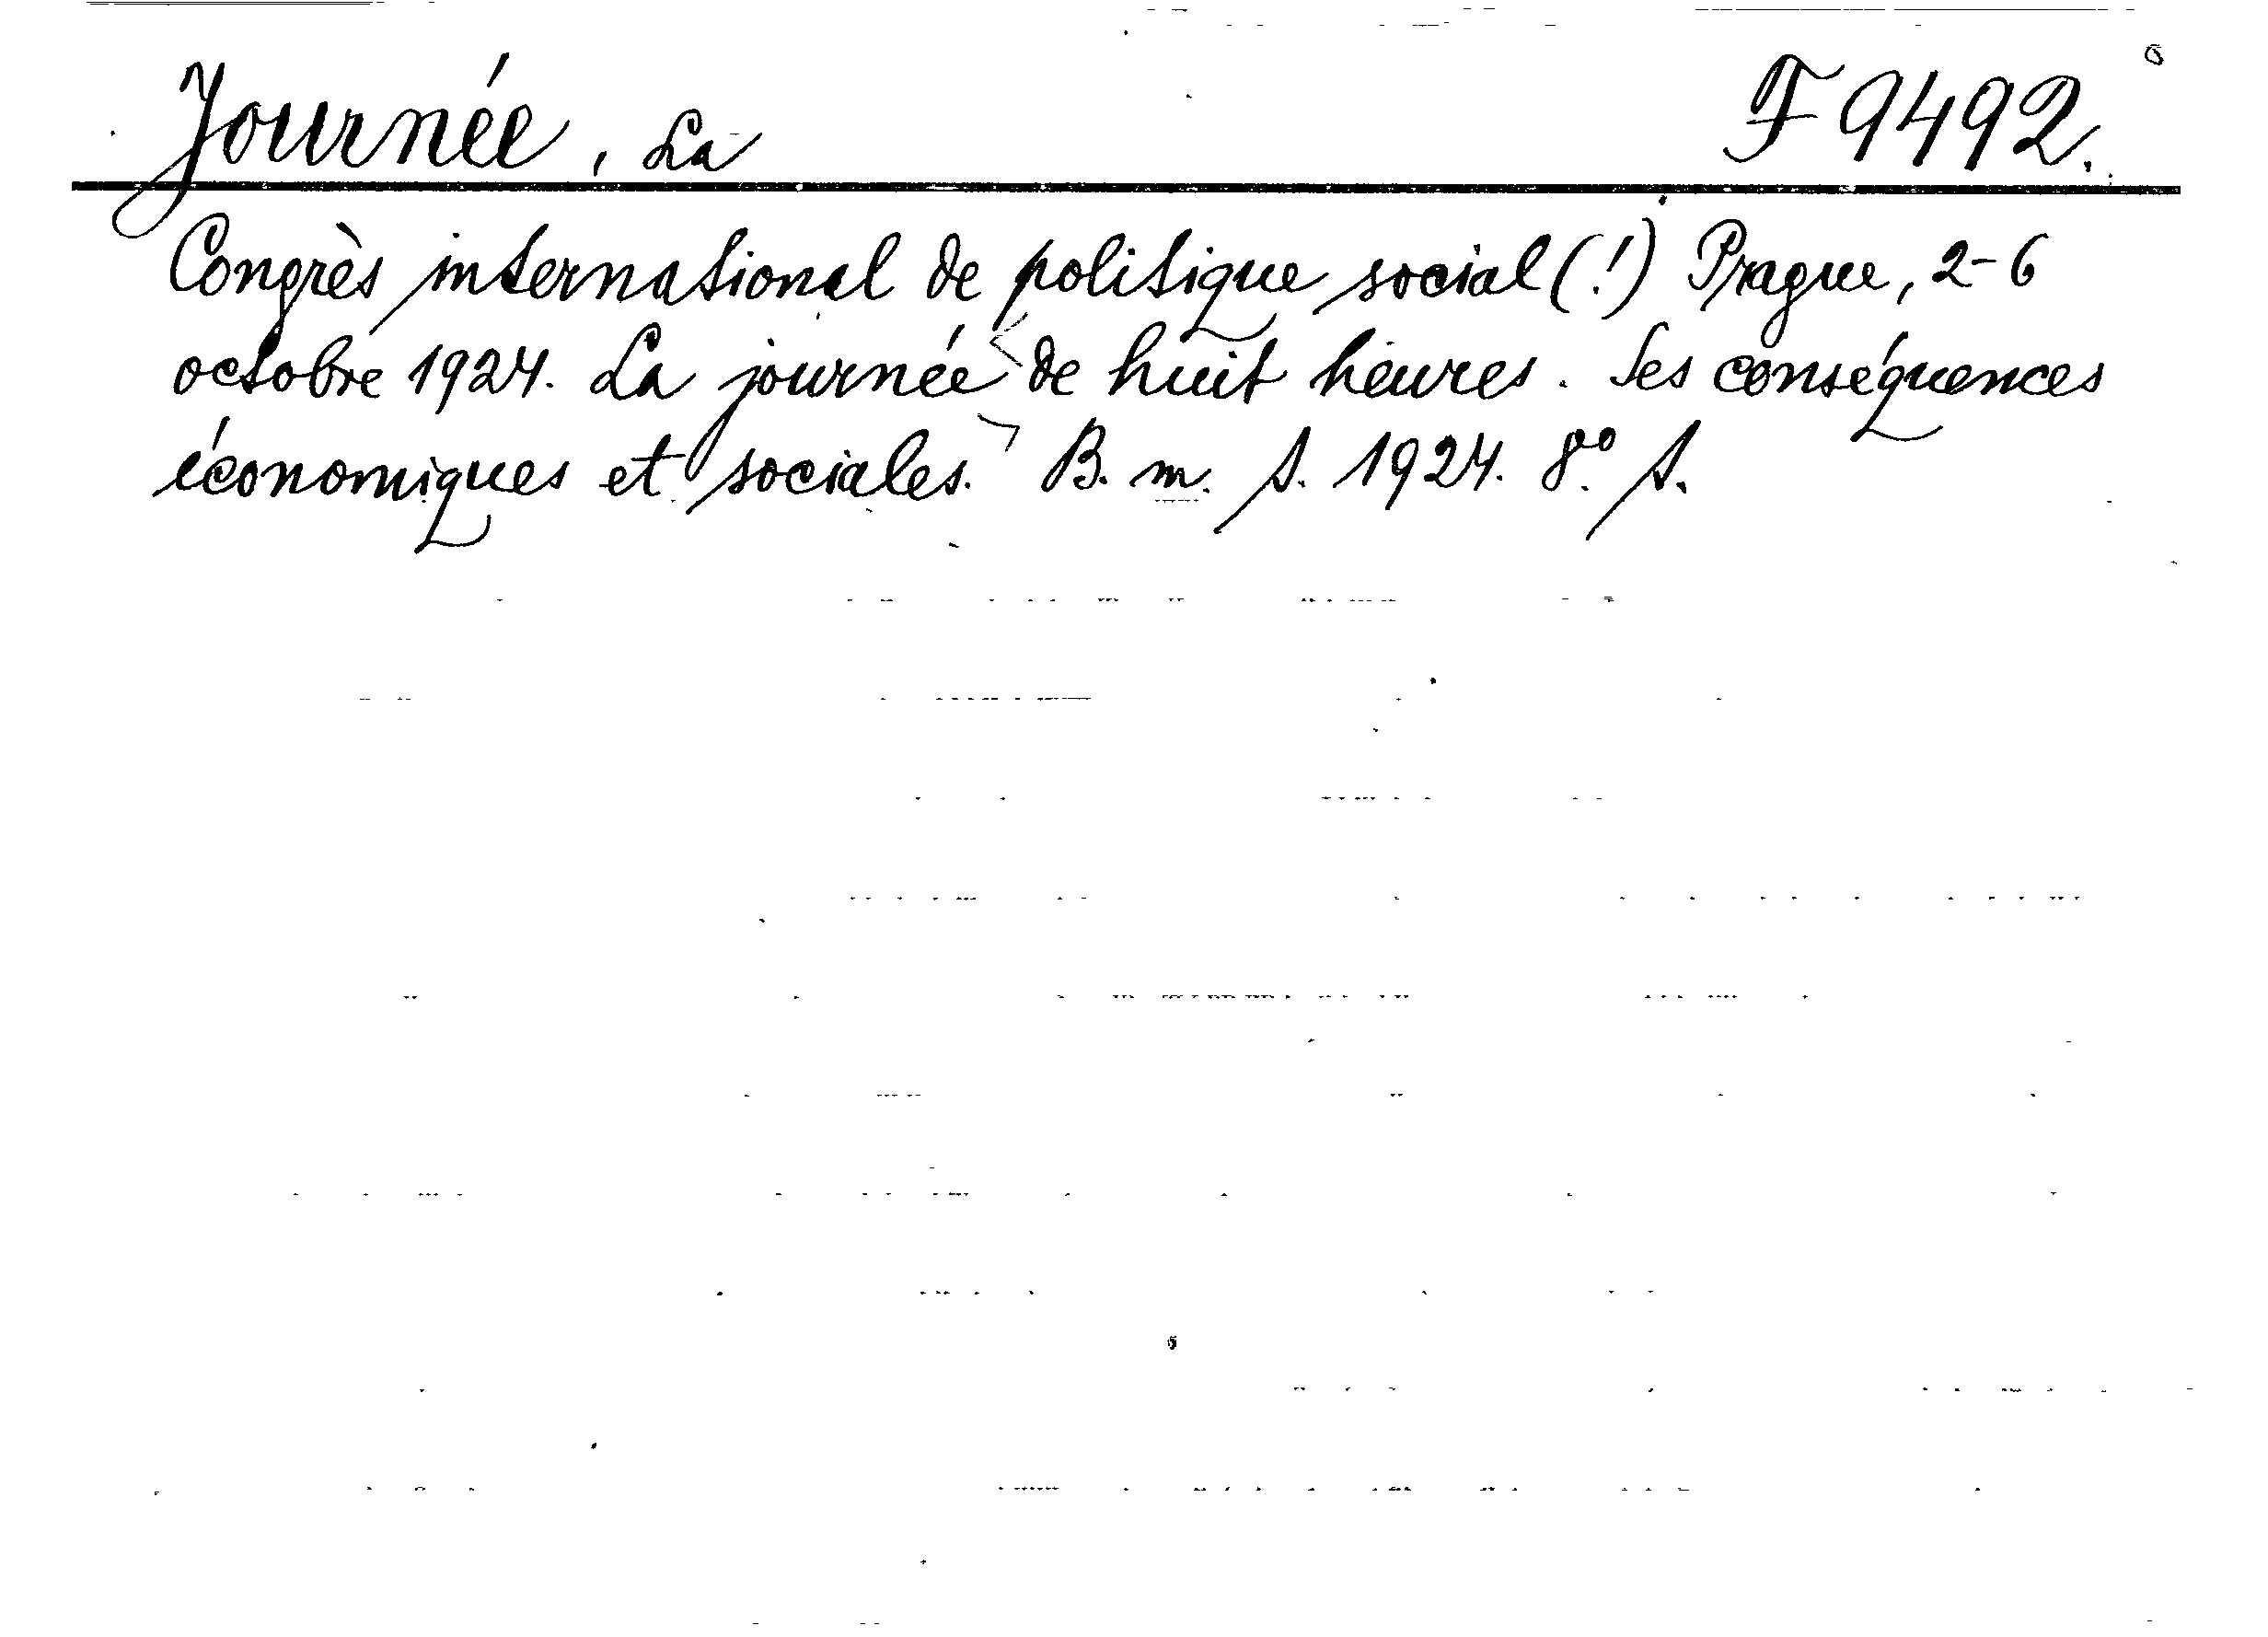 Journée, La F 9492.
Congrès international de politique social (!) Prague, 2-6
octobre 1924. La journée de huit heures. Ses conséquences
économiques et sociales. B. m. s. 1924. 8º. s.